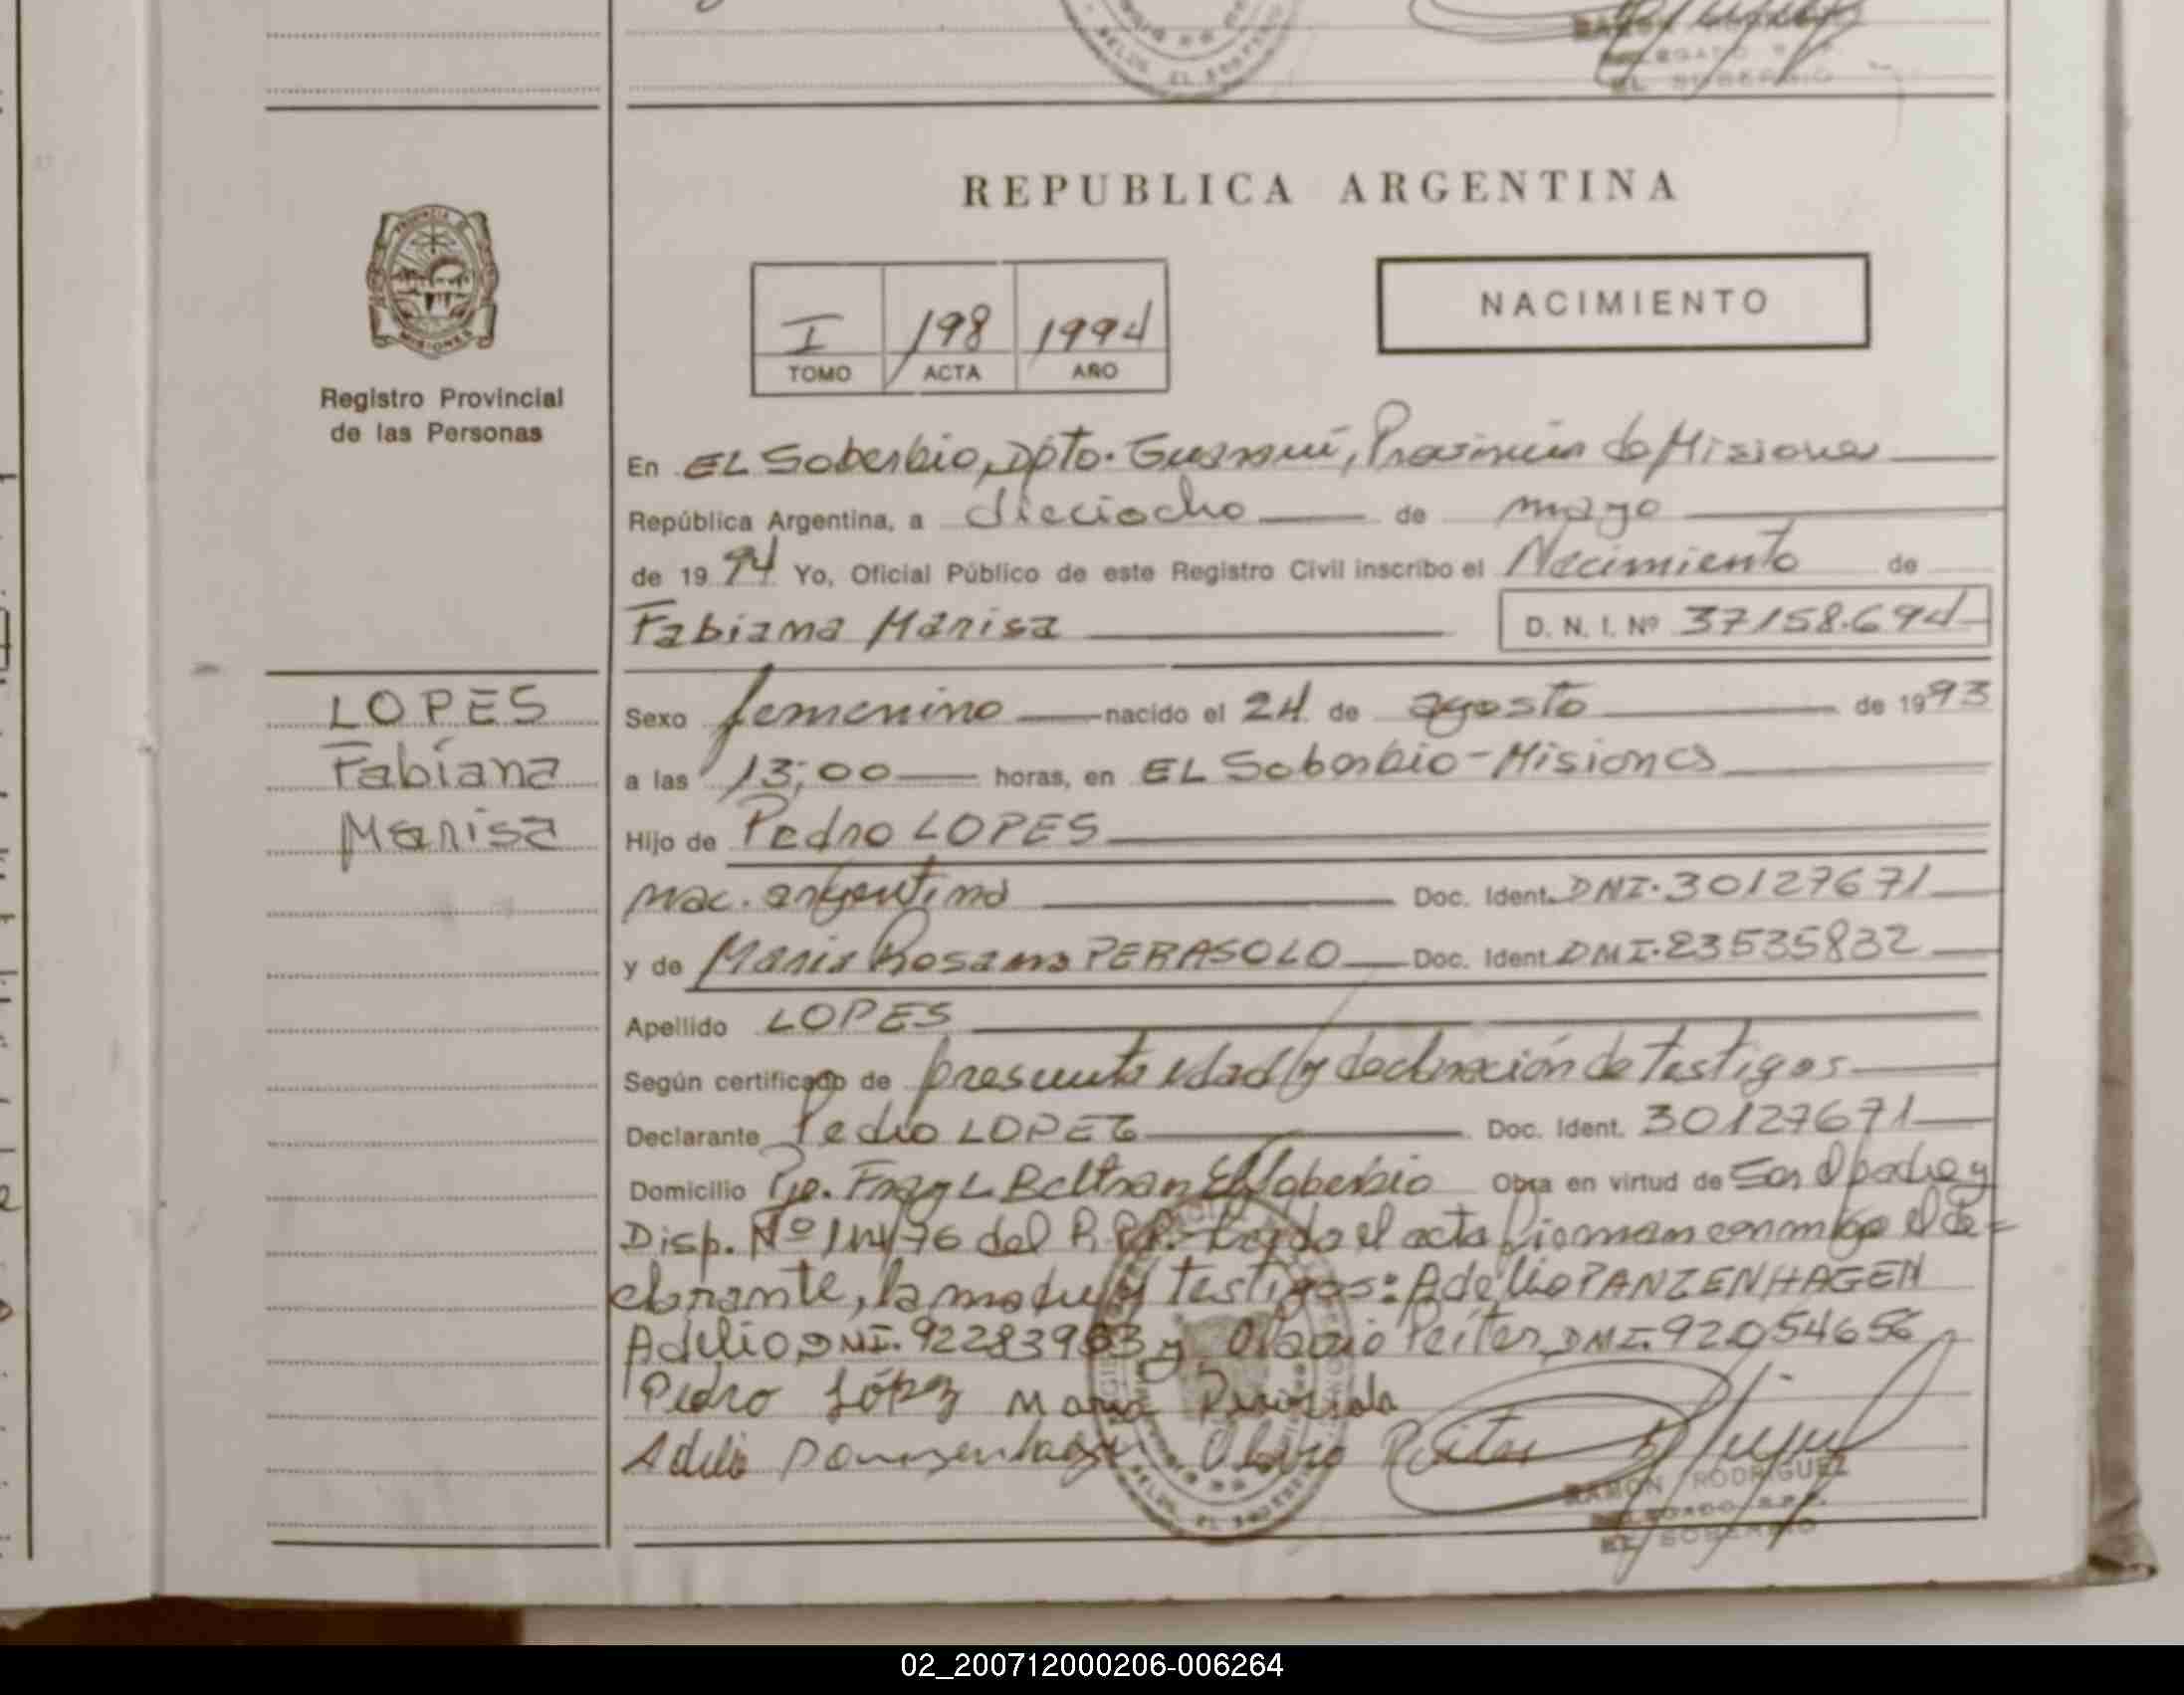 EL SOBERBIO
REPUBLICA ARGENTINA
PROVINCIA
MISIONES
Registro Provincial
de las Personas
I 198 1994
TOMO ACTA AÑO
NACIMIENTO
En EL Soberbio, Dpto. Guaraní, Provincia de Misiones
República Argentina, a dieciocho de mayo
de 1994 Yo, Oficial Público de este Registro Civil inscribo el Nacimiento de
Fabiana Marisa D. N. I. Nº 37158.694
LOPES
Fabiana
Marisa
Sexo femenino nacido el 24 de agosto de 1993
a las 13;00 horas, en EL Soberbio - Misiones
Hijo de Pedro LOPES
nac. argentina Doc. Ident. DNI. 30127671
y de Maria Rosana PERASOLO Doc. Ident. DNI. 23535832
Apellido LOPES
Según certificado de presunta edad y declaración de testigos
Declarante Pedro LOPES Doc. Ident. 30127671
Domicilio Pje. Fray L Beltran El Soberbio Obra en virtud de Ser el padre y
Disp. Nº 114/76 del R.P.P. Leyda el acta firman conmigo el de=
clarante, la madre y testigos: Adelio PANZENHAGEN
Adelio DNI. 92283963 y Olavio Peiter DNI. 92054656
Pedro López Maria
Adelio Panzenhagen Olavio Peiter
RAMON RODRIGUEZ
DELEGADO R.P.P.
EL SOBERBIO
02_200712000206-006264